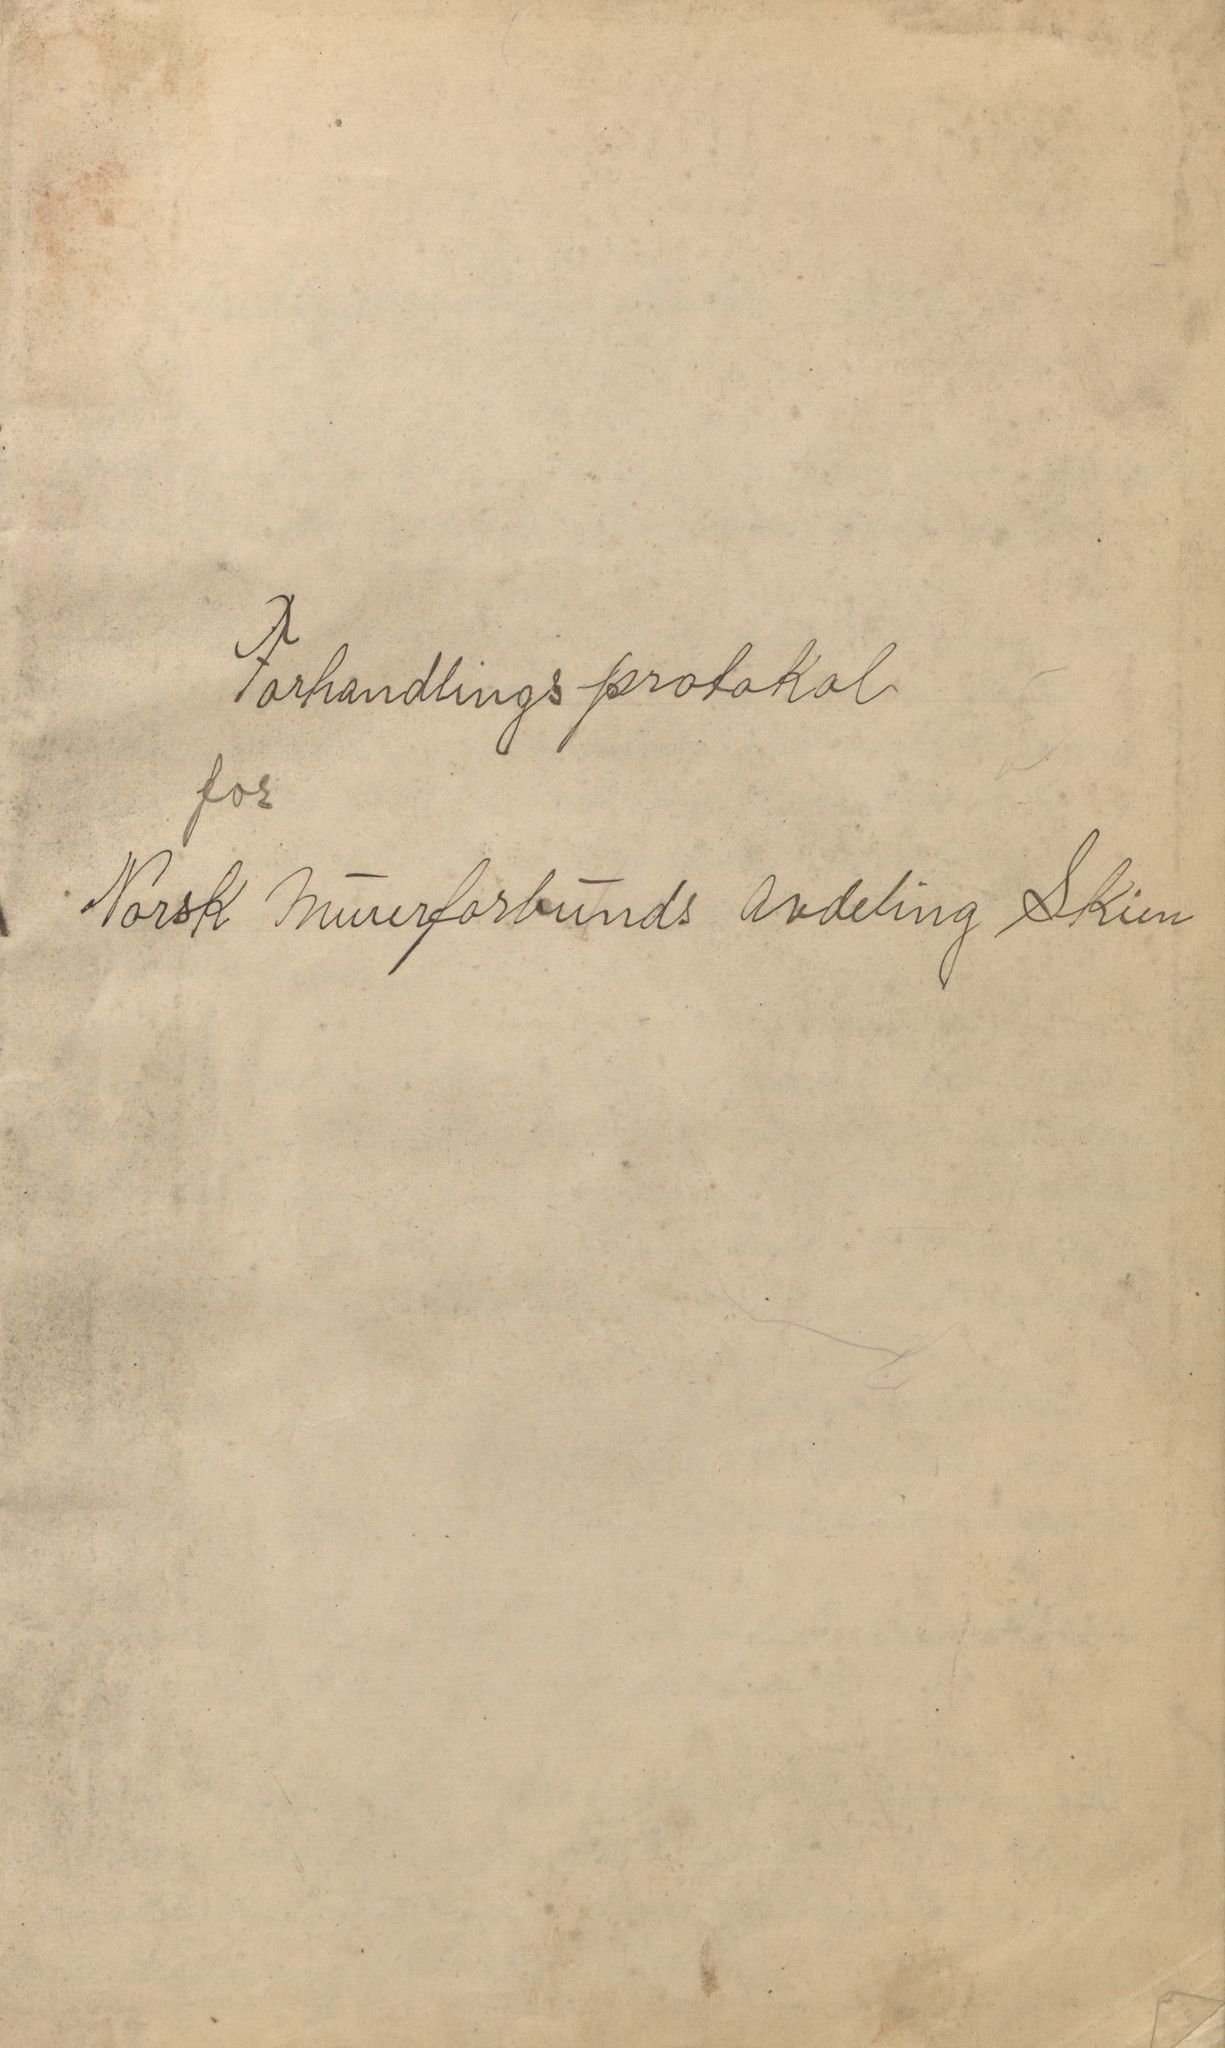 Forhandlingsprotokol
for
Norsk Murerforbunds Avdeling Skien